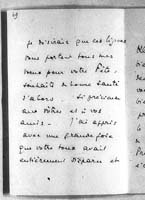 je désirais que ces lignes
vous portent tous mes
vœux pour votre fête,
souhaits de bonne santé
d'abord. Si précieuse
aux vôtres et à vos
amis. J'ai appris
avec une grande joie
que votre toux avait
entièrement disparu et